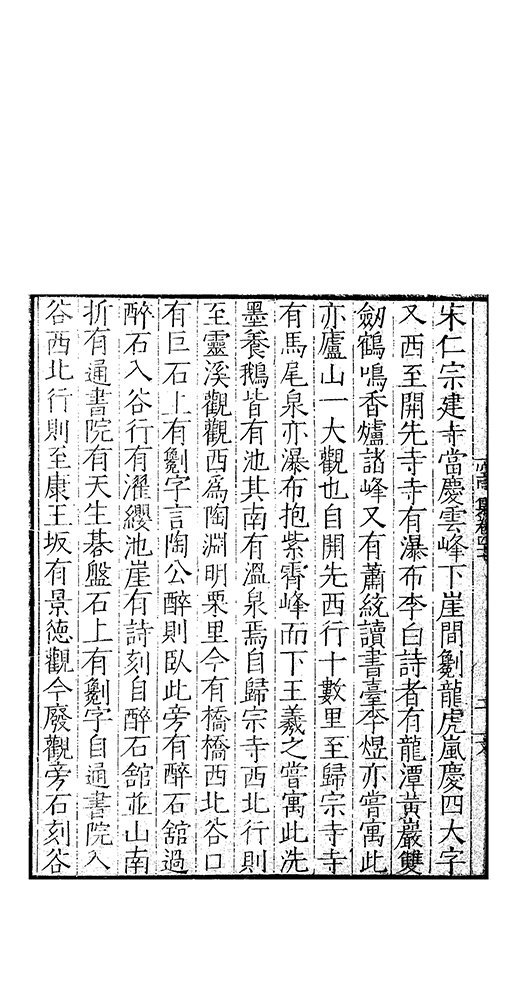 宋仁宗建寺當慶雲峰下崖間劖龍虎嵐慶四大字
又西至開先寺寺有瀑布李白詩者有龍潭黃巖雙
劒鶴鳴香爐諸峰又有蕭統讀書臺李煜亦嘗寓此
亦廬山一大觀也自開先西行十數里至歸宗寺寺
有馬尾泉亦瀑布抱紫霄峰而下王羲之嘗寓此洗
墨養鵝皆有池其南有溫泉焉自歸宗寺西北行則
至靈溪觀觀西為陶淵明栗里今有橋橋西北谷口
有巨石上有劖字言陶公醉則臥此旁有醉石舘過
醉石入谷行有濯纓池崖有詩刻自醉石舘並山南
折有通書院有天生碁盤石上有劖字自通書院入
谷西北行則至康王坂有景德觀今廢觀旁石刻谷
集卷四七